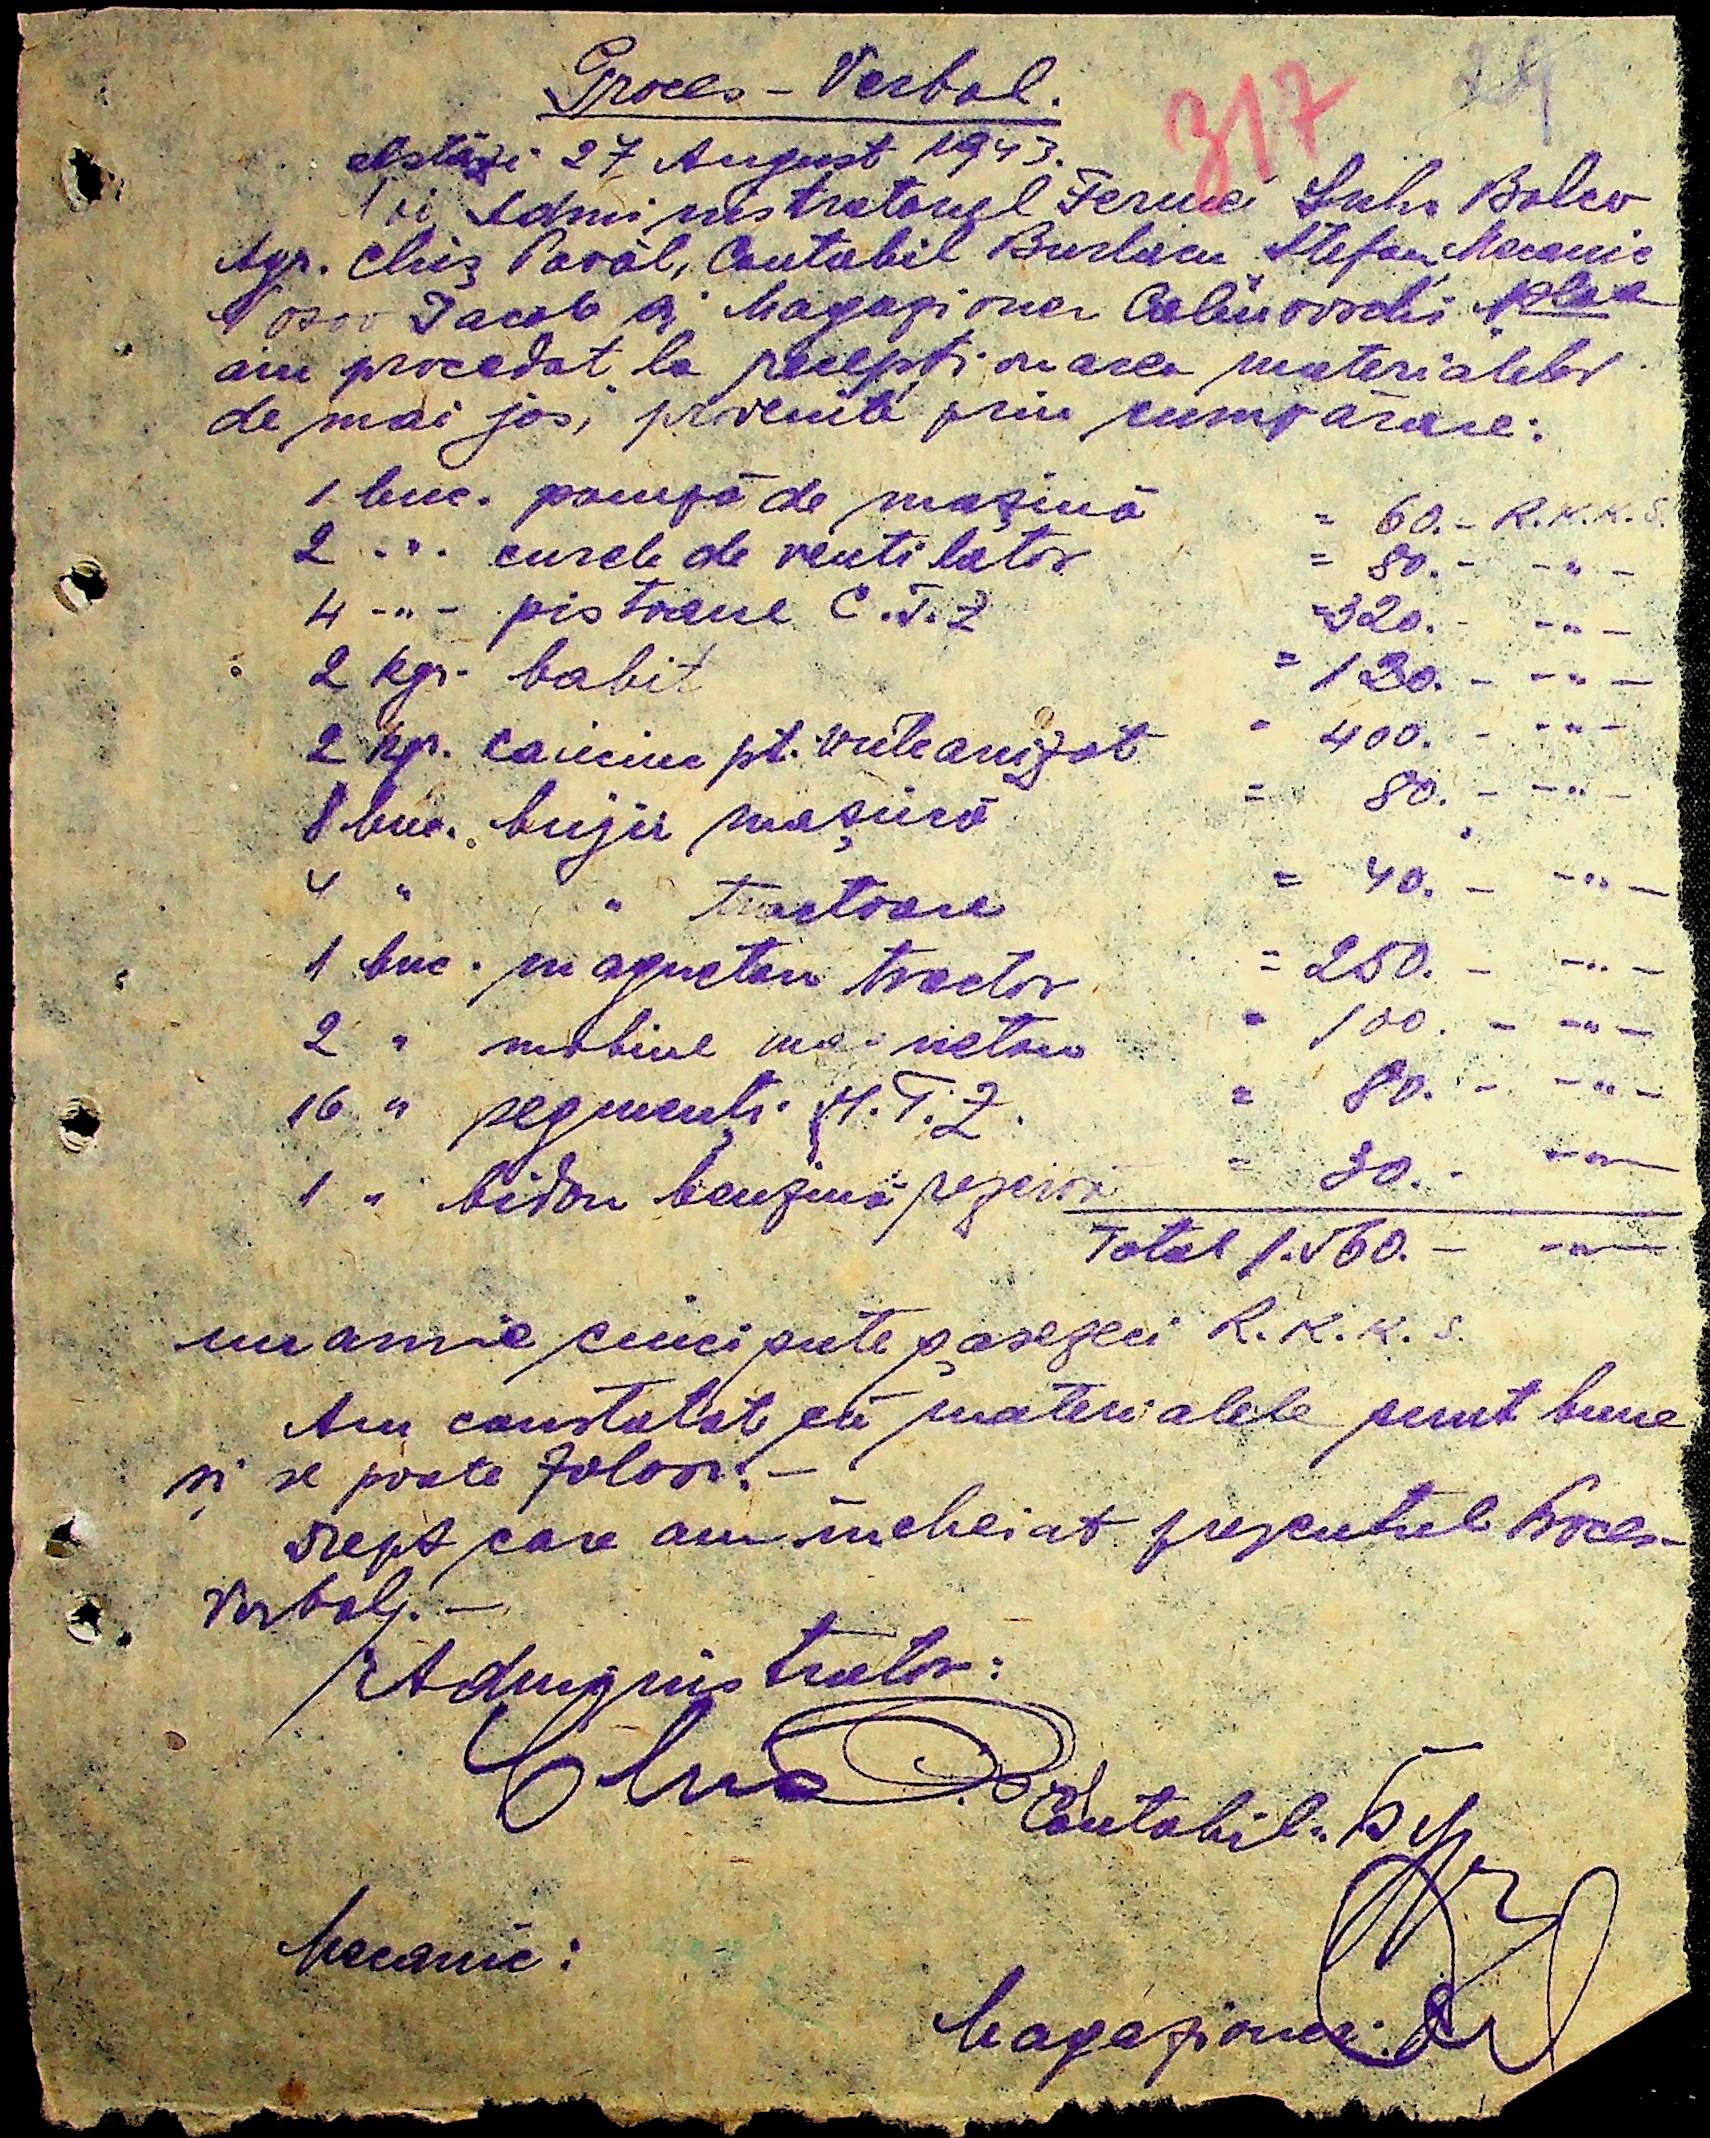 Proces-Verbal.
317
29
Astăzi 27 August 1943.
Noi Administratorul Fermei Suha Balca
Agr. Chiș Pavăl, Contabil Burlacu Ștefan, Mecanic
Nosov Iacob și Magazioner
am procedat la recepționarea materialelor
de mai jos, provenite prin cumpărare:
1 buc. pompă de mașină = 60.- R.K.K.S.
2 -"- curele de ventilator = 80.- -"-
4 -"- pistoane C.T.Z = 320.- -"-
2 kgr. babit = 120.- -"-
2 kgr. cauciuc pt. vulcanizat = 400.- -"-
8 buc. bujii mașină = 80.- -"-
4 " " tractoare = 40.- -"-
1 buc. magnetou tractor = 250.- -"-
2 " mobine magnetou = 100.- -"-
16 " segmenți H.T.Z. = 80.- -"-
1 " bidon benzină rezervă = 30.- -"-
Total 1.560.- -"-
unamie cincisute șasezeci R.K.K.S.
Am constatat că materialele sunt bune
și se poate folosi.-
Drept care am încheiat prezentul Proces-
Verbal.-
Administrator:
Contabil:
Mecanic:
Magazioner: